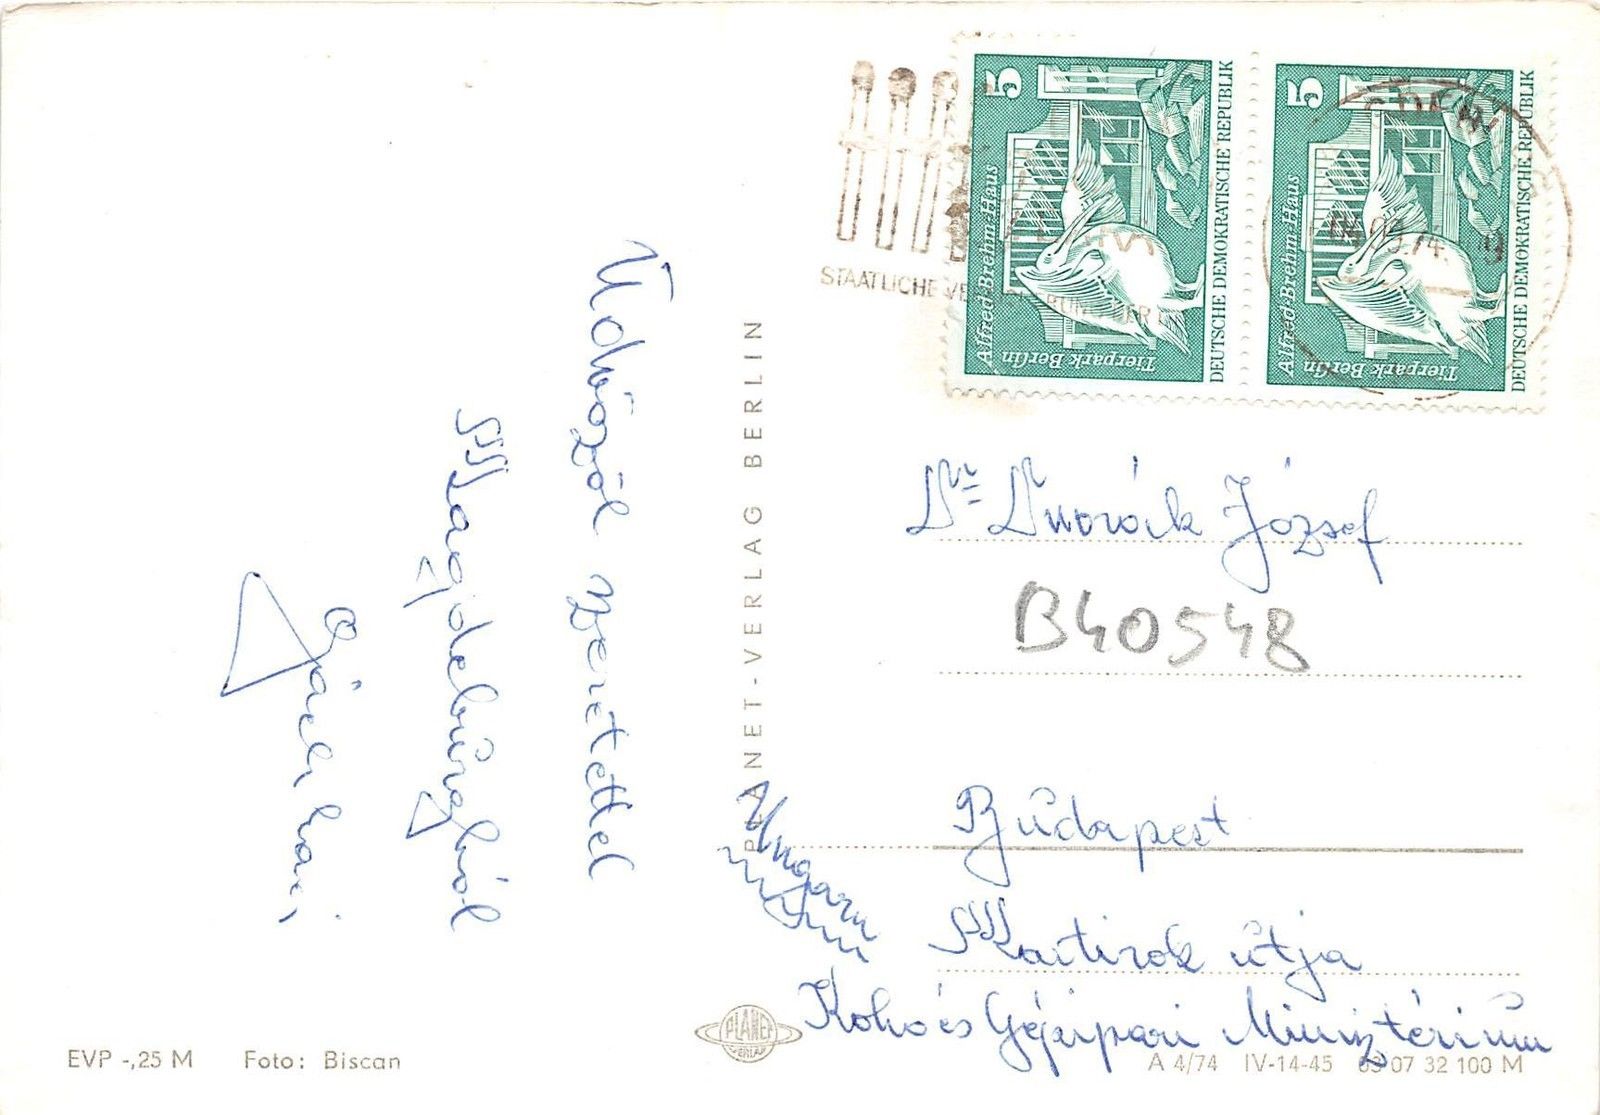 Üdvözöl szeretettel
Magdeburgból
STAATLICHE
5
Alfred-Brehm-Haus
Tierpark Berlin
DEUTSCHE DEMOKRATISCHE REPUBLIK
5
Alfred-Brehm-Haus
Tierpark Berlin
DEUTSCHE DEMOKRATISCHE REPUBLIK
09.74
PLANET-VERLAG BERLIN
Dr Dvorák József
B40548
Budapest
Ungarn
Mártirok útja
Kohó és Gépipari Minisztérium
PLANET
VERLAG
EVP -,25 M Foto: Biscan
A 4/74 IV-14-45 03 07 32 100 M